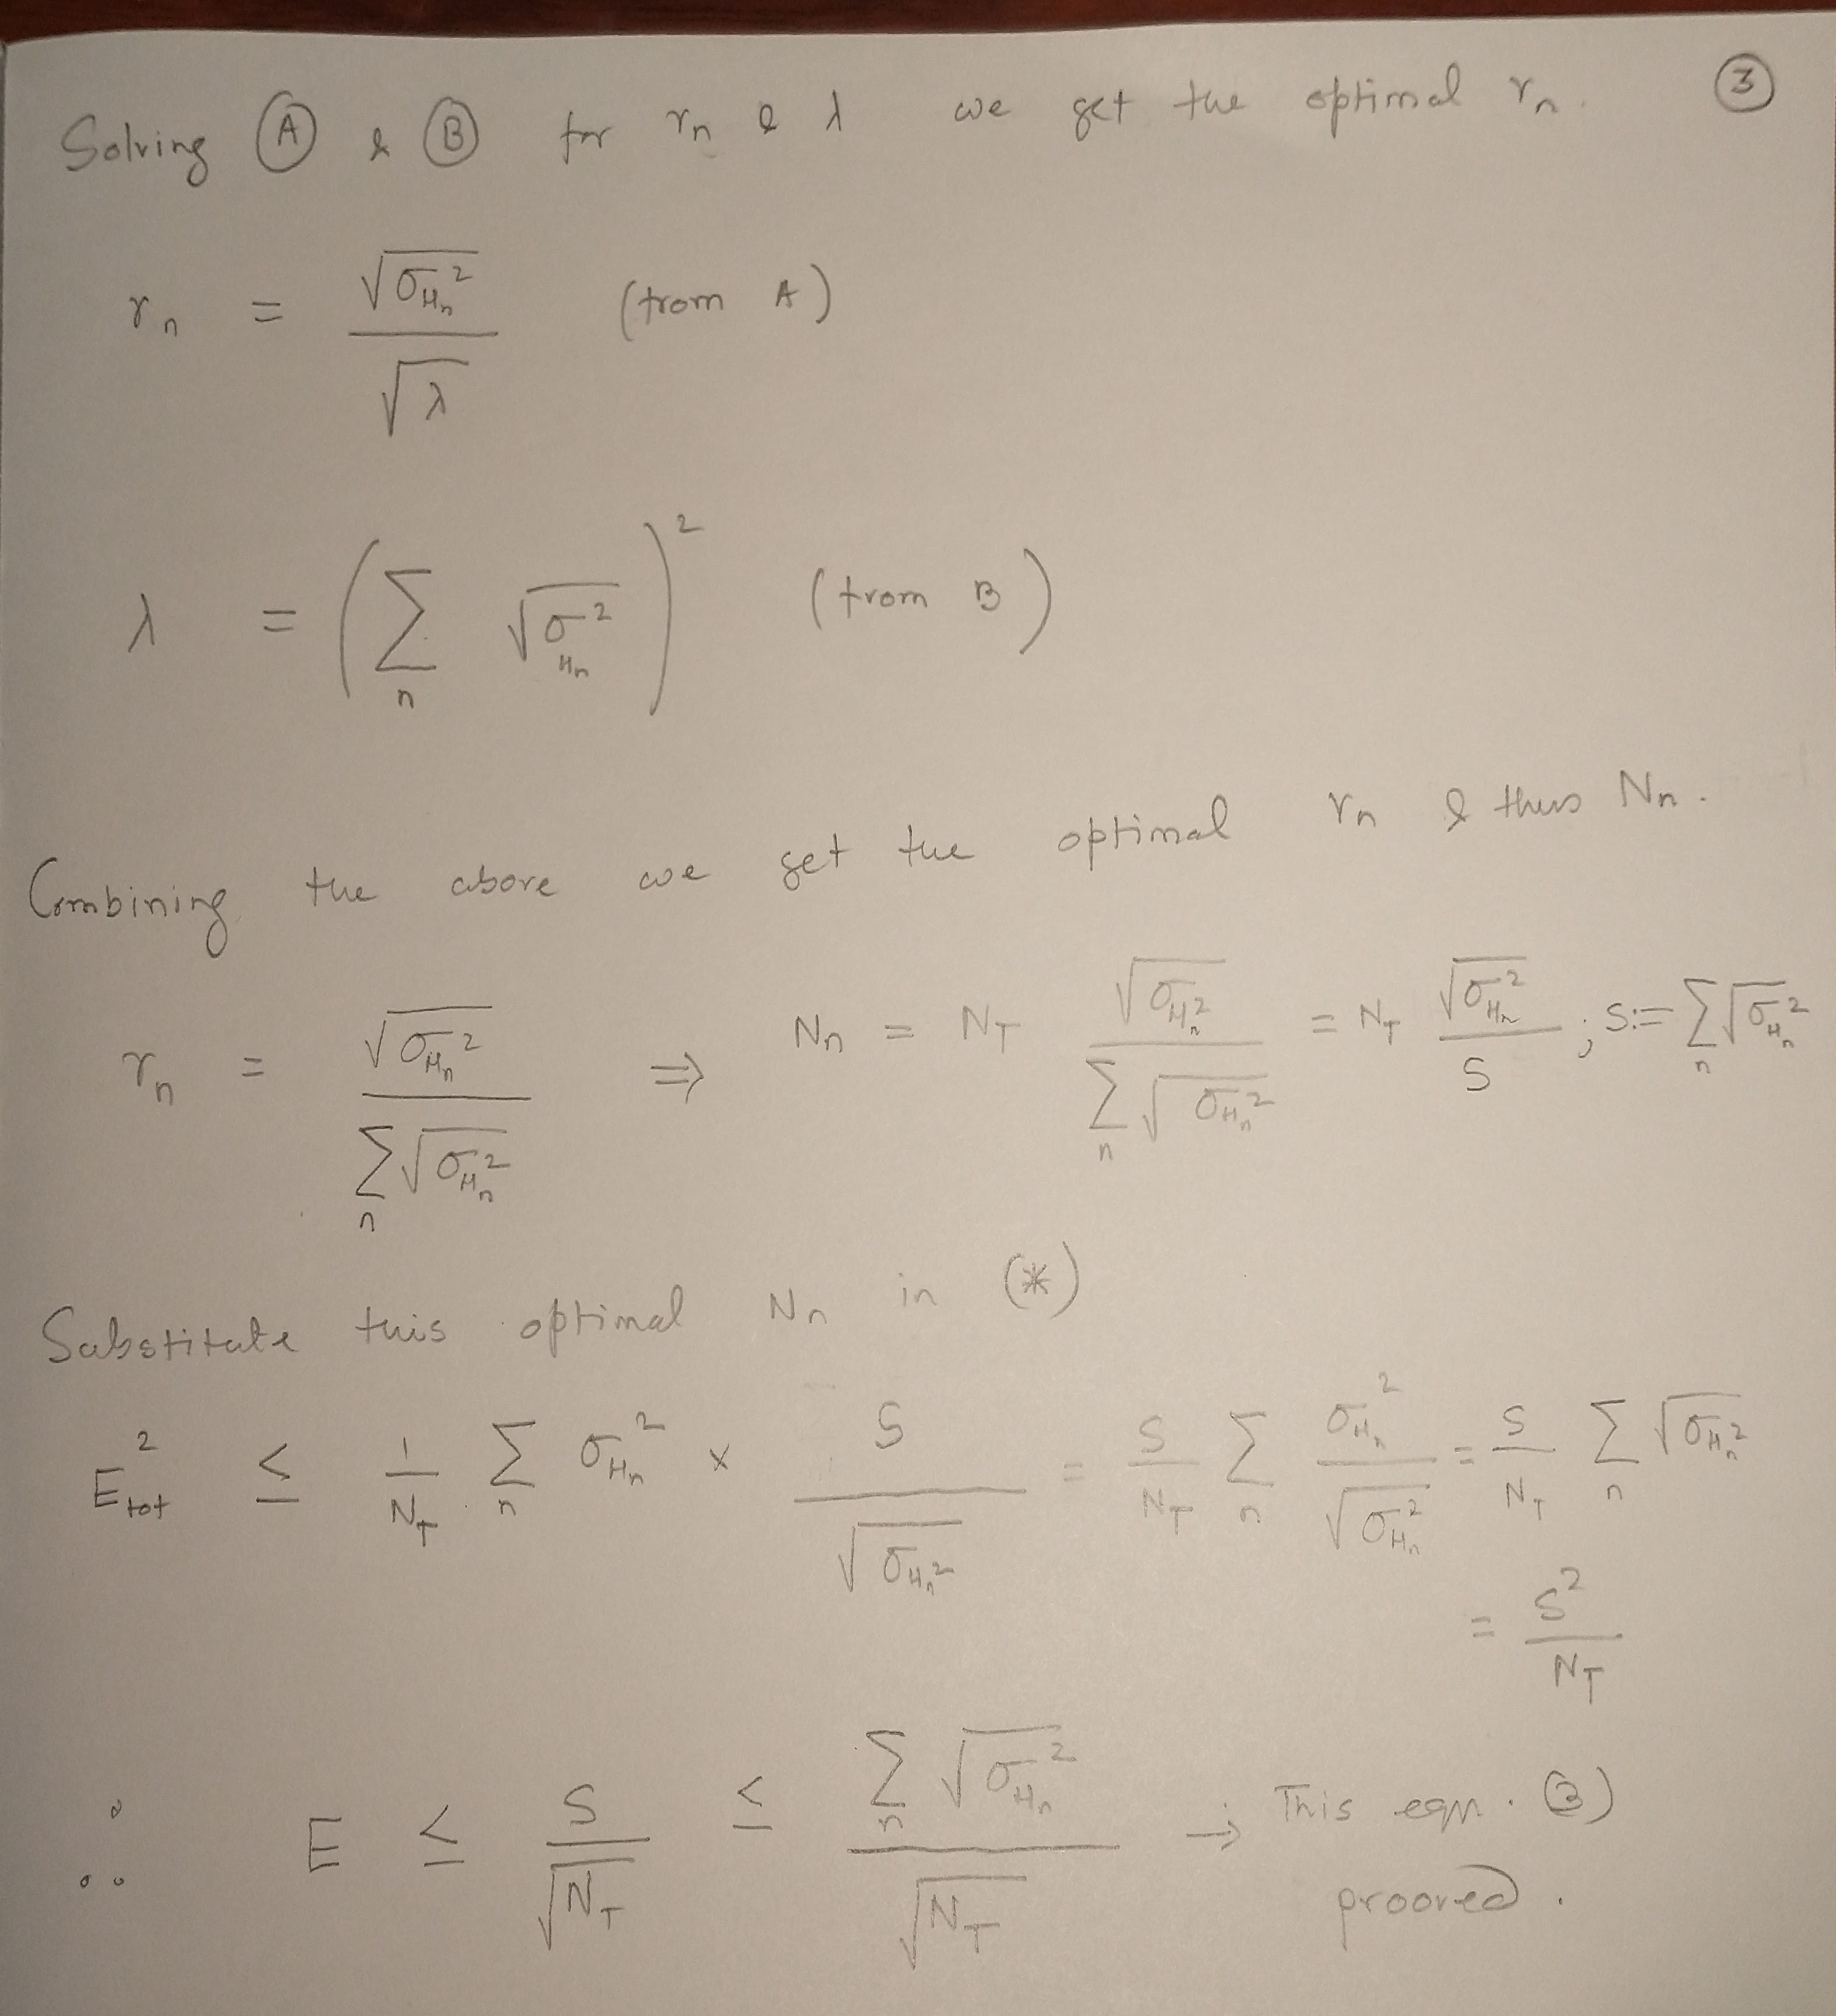 Solving Ⓐ & Ⓑ for rₙ & λ we get the optimal rₙ. ③
rₙ = √σ_{Hₙ}² / √λ (from A)
λ = (∑ₙ √σ_{Hₙ}²)² (from B)
Combining the above we get the optimal rₙ & thus Nₙ.
rₙ = √σ_{Hₙ}² / ∑ₙ √σ_{Hₙ}² ⇒ Nₙ = N_T √σ_{Hₙ}² / ∑ₙ √σ_{Hₙ}² = N_T √σ_{Hₙ}² / S ; S := ∑ₙ √σ_{Hₙ}²
Substitute this optimal Nₙ in (*)
E_{tot}² ≤ 1/N_T ∑ₙ σ_{Hₙ}² × S / √σ_{Hₙ}² = S/N_T ∑ₙ σ_{Hₙ}² / √σ_{Hₙ}² = S/N_T ∑ₙ √σ_{Hₙ}²
= S² / N_T
∴ E ≤ S / √N_T ≤ ∑ₙ √σ_{Hₙ}² / √N_T → This eqn. ③)
prooved.